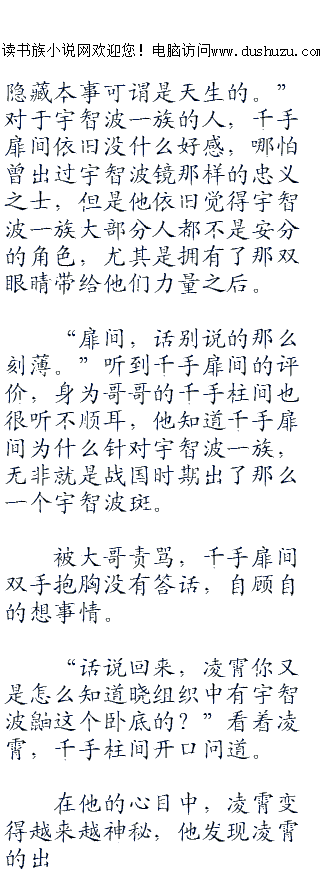 读书族小说网欢迎您！电脑访问www.dushuzu.com
隐藏本事可谓是天生的。”
对于宇智波一族的人，千手
扉间依旧没什么好感，哪怕
曾出过宇智波镜那样的忠义
之士，但是他依旧觉得宇智
波一族大部分人都不是安分
的角色，尤其是拥有了那双
眼睛带给他们力量之后。
“扉间，话别说的那么
刻薄。”听到千手扉间的评
价，身为哥哥的千手柱间也
很听不顺耳，他知道千手扉
间为什么针对宇智波一族，
无非就是战国时期出了那么
一个宇智波斑。
被大哥责骂，千手扉间
双手抱胸没有答话，自顾自
的想事情。
“话说回来，凌霄你又
是怎么知道晓组织中有宇智
波鼬这个卧底的？”看着凌
霄，千手柱间开口问道。
在他的心目中，凌霄变
得越来越神秘，他发现凌霄
的出